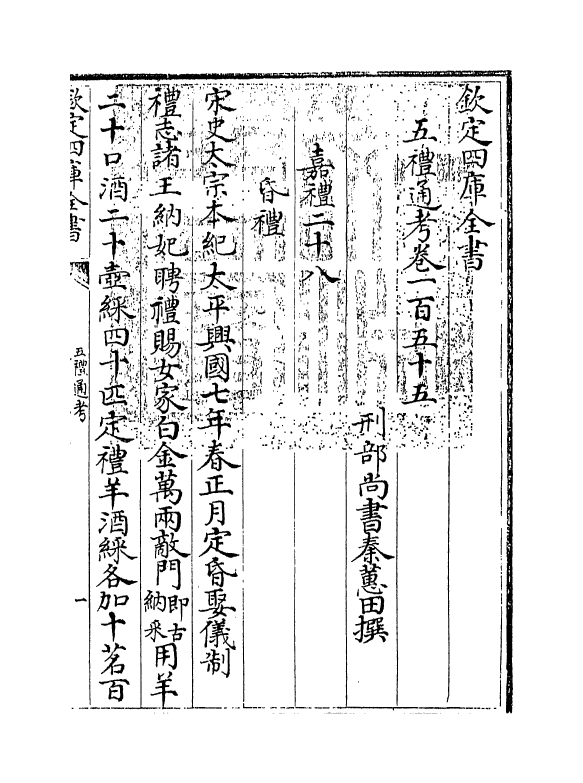 欽定四庫全書
五禮通考卷一百五十五
刑部尚書秦蕙田撰
嘉禮二十八
昏禮
宋史太宗本紀太平興國七年春正月定昏娶儀制
禮志諸王納妃聘禮賜女家白金萬兩敵門即古納采用羊
二十口酒二十壺綵四十匹定禮羊酒綵各加十茗百
欽定四庫全書
五禮通考
一